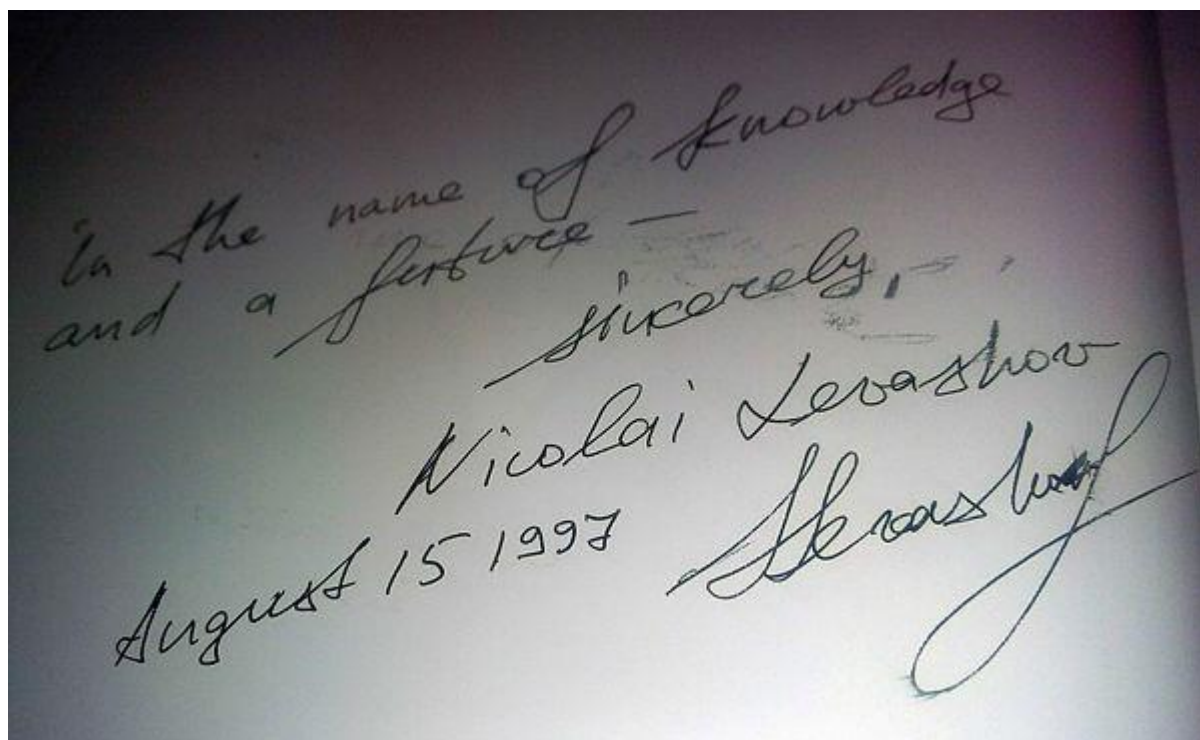 in the name of knowledge
and a future —
sincerely,
Nicolai Levashov
August 15 1997